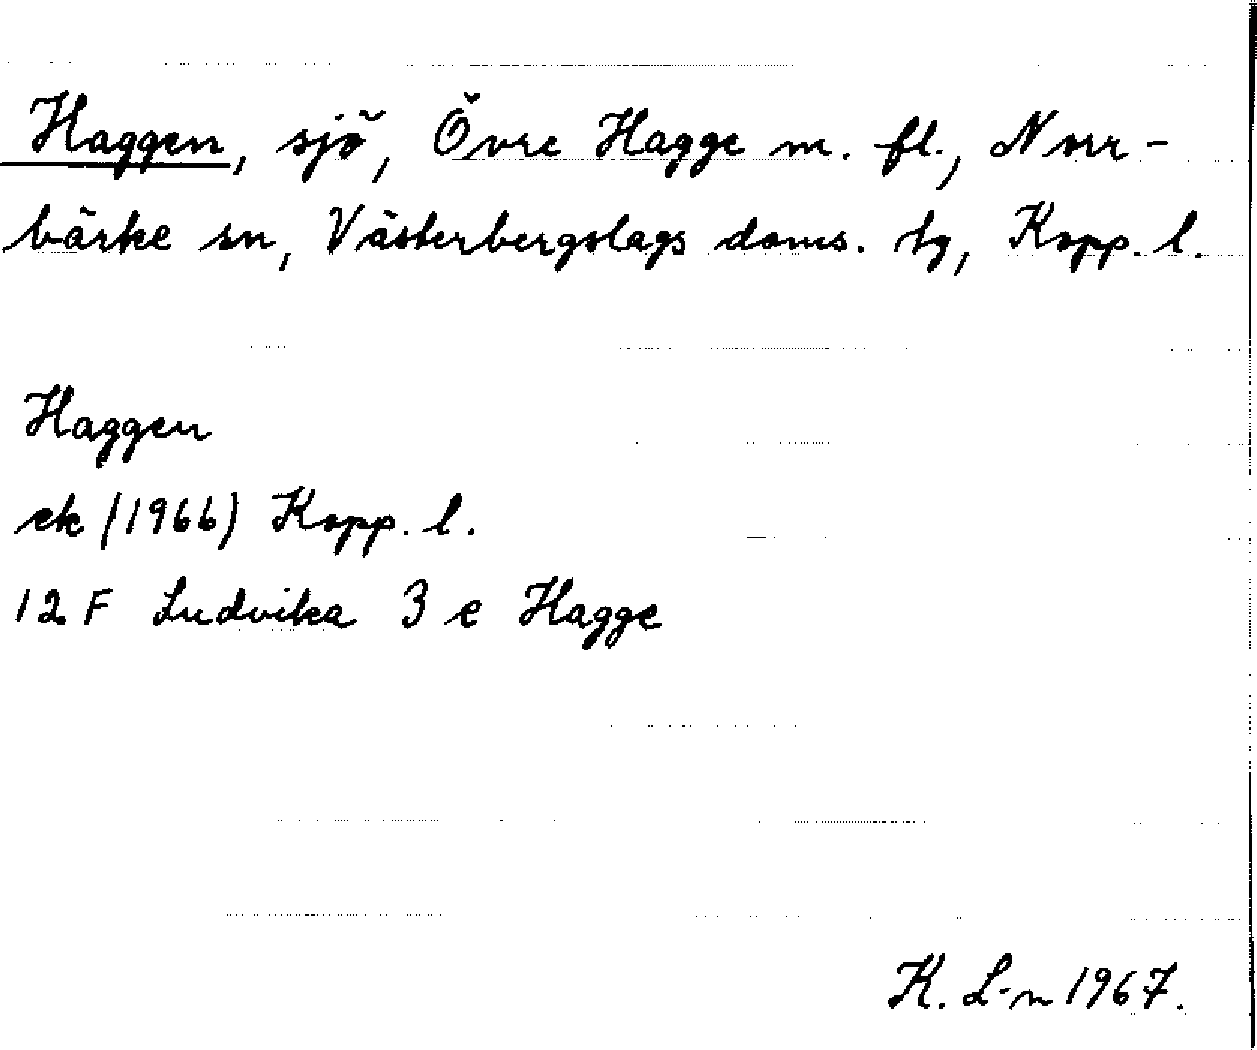 Haggen, sjö, Övre Hagge m. fl., Norr-
bärke sn, Västerbergslags doms. tg, Kopp. l.
Haggen
ek (1966) Kopp. l.
12 F Ludvika 3 e Hagge
K. L-n 1967.